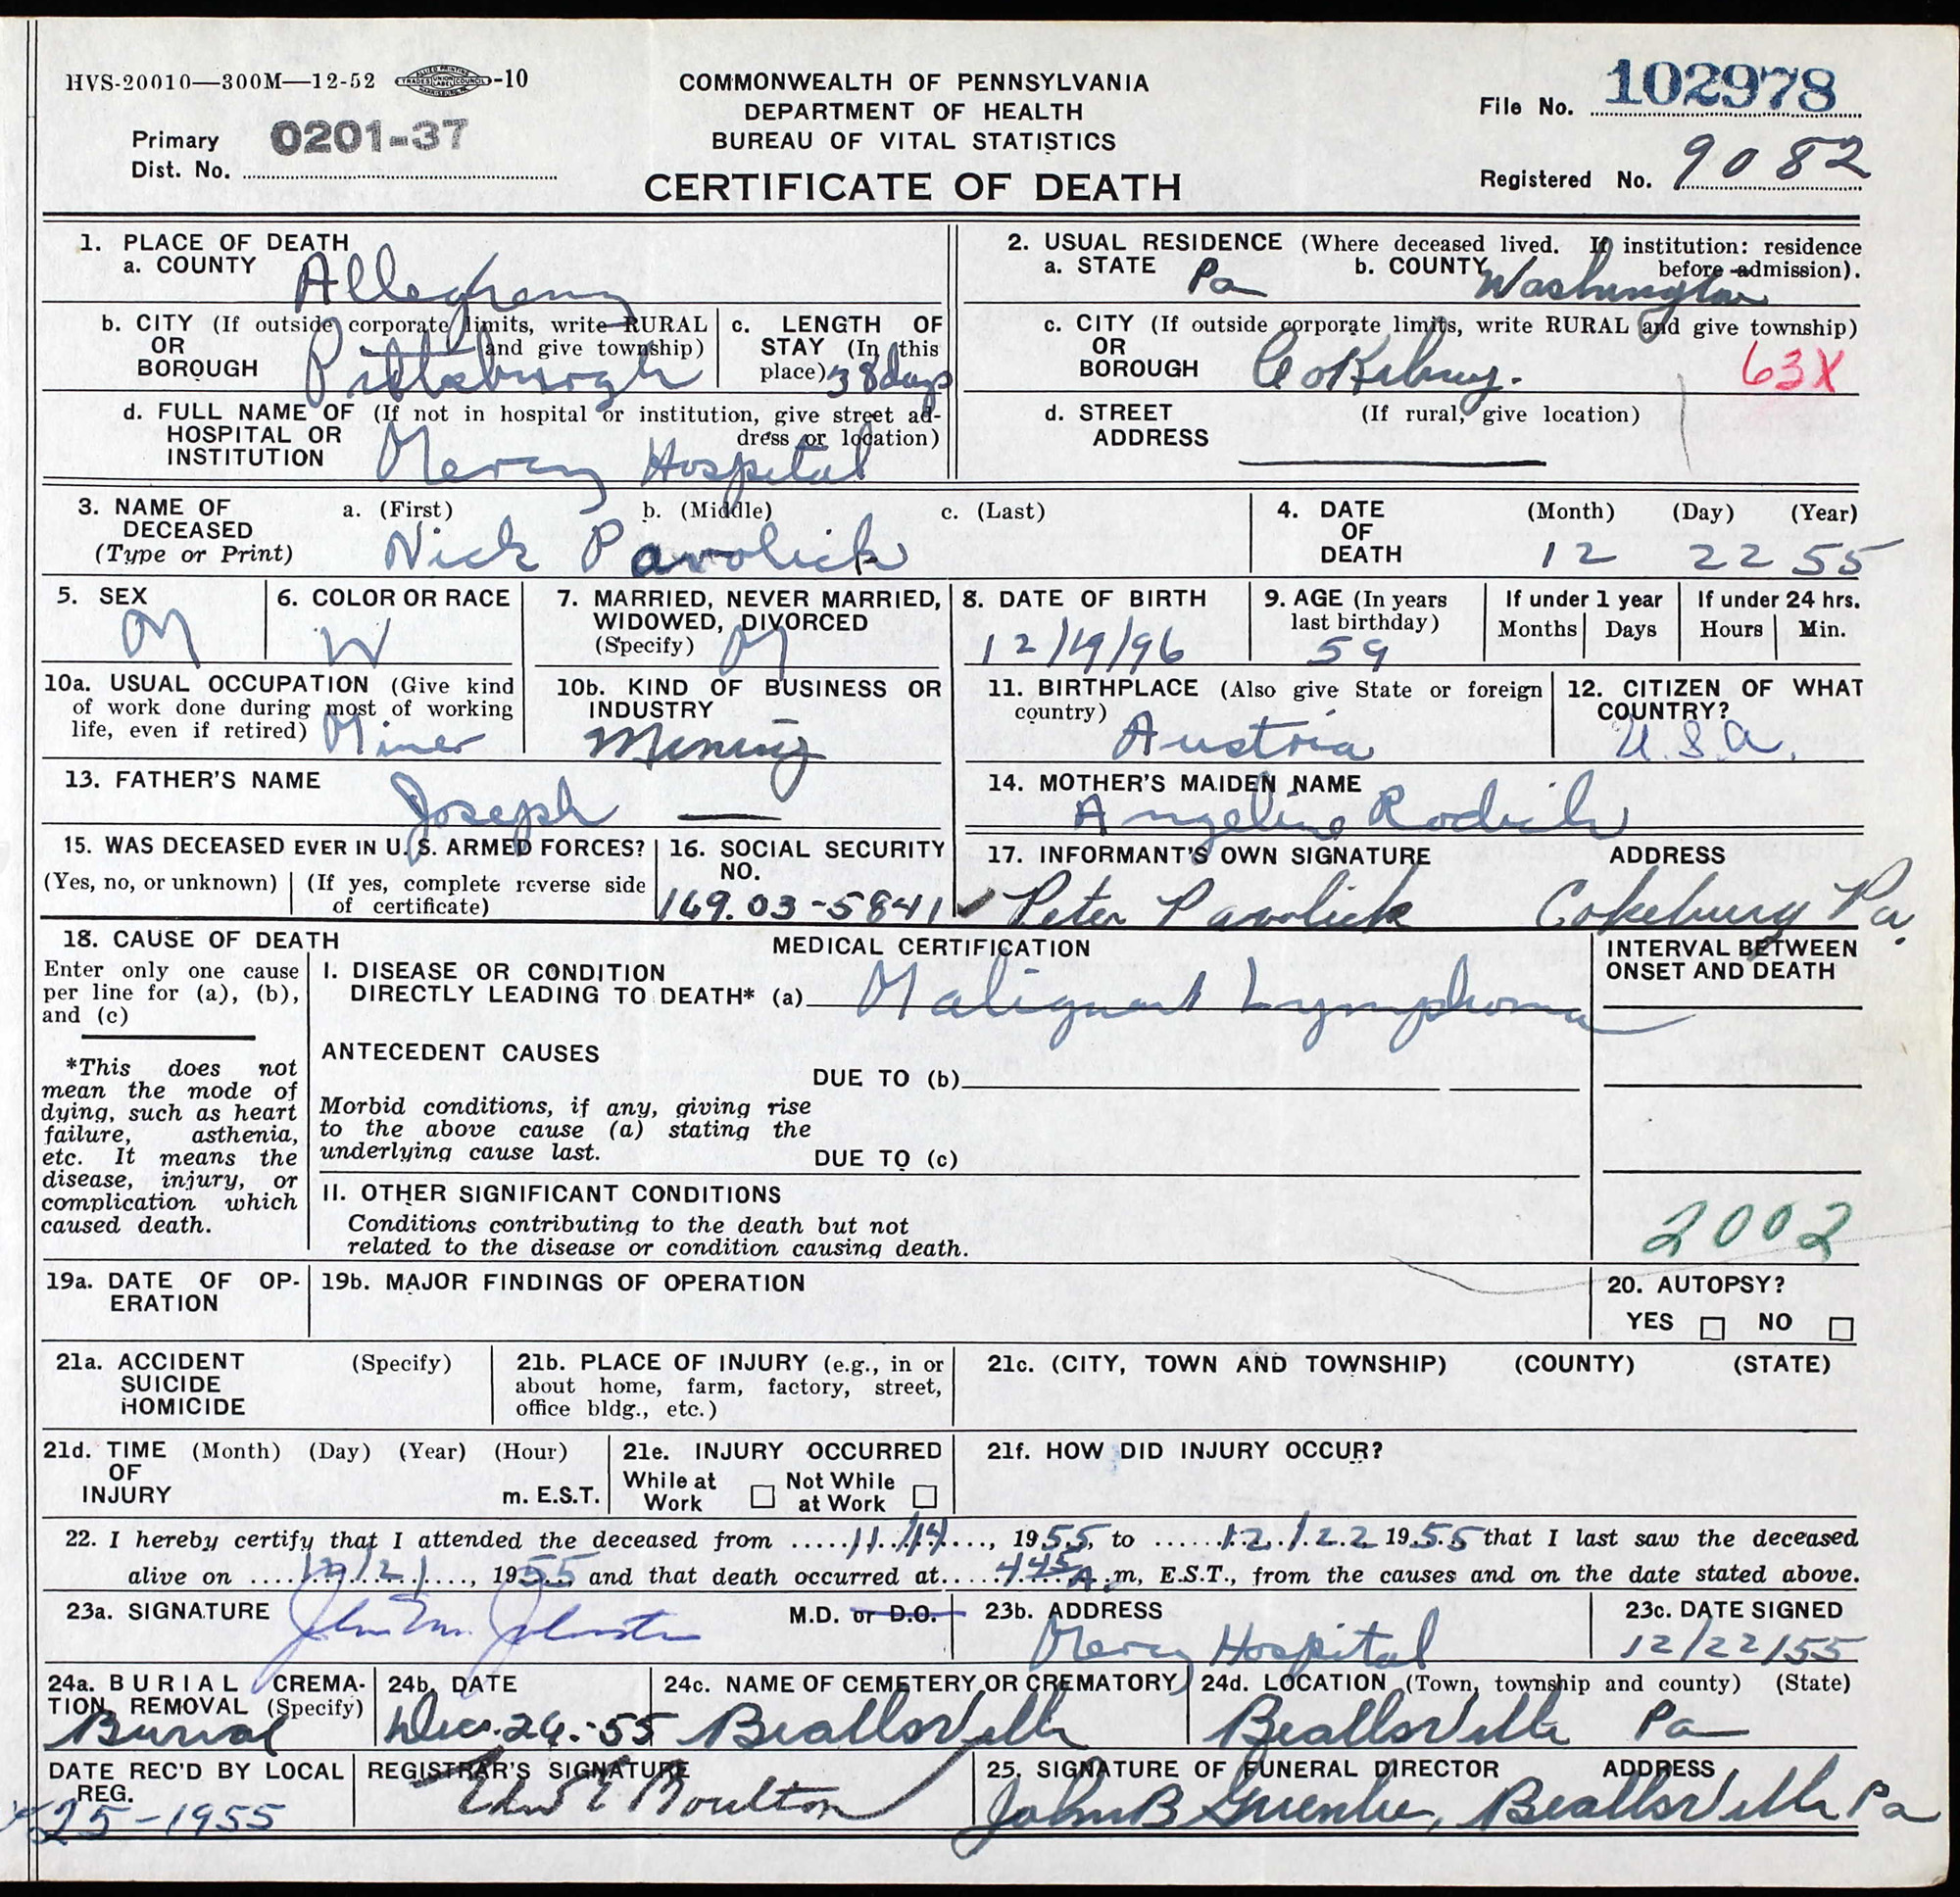 HVS-20010—300M—12-52 -10
COMMONWEALTH OF PENNSYLVANIA
DEPARTMENT OF HEALTH
BUREAU OF VITAL STATISTICS
CERTIFICATE OF DEATH
Primary Dist. No. 0201-37
File No. 102978
Registered No. 9082
1. PLACE OF DEATH
a. COUNTY Allegheny
b. CITY (If outside corporate limits, write RURAL
OR and give township)
BOROUGH Pittsburgh
c. LENGTH OF
STAY (In this
place) 38 days
d. FULL NAME OF (If not in hospital or institution, give street ad-
HOSPITAL OR dress or location)
INSTITUTION Mercy Hospital
2. USUAL RESIDENCE (Where deceased lived. If institution: residence
before admission).
a. STATE Pa b. COUNTY Washington
c. CITY (If outside corporate limits, write RURAL and give township)
OR
BOROUGH Cokeburg. 63X
d. STREET (If rural, give location)
ADDRESS
3. NAME OF a. (First) b. (Middle) c. (Last)
DECEASED
(Type or Print) Nick Pavolick
4. DATE (Month) (Day) (Year)
OF
DEATH 12 22 55
5. SEX M
6. COLOR OR RACE W
7. MARRIED, NEVER MARRIED,
WIDOWED, DIVORCED
(Specify) M
8. DATE OF BIRTH
12/19/96
9. AGE (In years
last birthday)
59
If under 1 year
Months Days
If under 24 hrs.
Hours Min.
10a. USUAL OCCUPATION (Give kind
of work done during most of working
life, even if retired) Miner
10b. KIND OF BUSINESS OR
INDUSTRY
Mining
11. BIRTHPLACE (Also give State or foreign
country)
Austria
12. CITIZEN OF WHAT
COUNTRY?
U.S.A.
13. FATHER'S NAME
Joseph —
14. MOTHER'S MAIDEN NAME
Angeline Rodich
15. WAS DECEASED EVER IN U. S. ARMED FORCES?
(Yes, no, or unknown) (If yes, complete reverse side
of certificate)
16. SOCIAL SECURITY
NO.
169.03-5841
17. INFORMANT'S OWN SIGNATURE ADDRESS
Peter Pavolick Cokeburg Pa.
18. CAUSE OF DEATH
Enter only one cause
per line for (a), (b),
and (c)
*This does not
mean the mode of
dying, such as heart
failure, asthenia,
etc. It means the
disease, injury, or
complication which
caused death.
MEDICAL CERTIFICATION
I. DISEASE OR CONDITION
DIRECTLY LEADING TO DEATH* (a) Malignant Lymphoma
ANTECEDENT CAUSES
DUE TO (b)
Morbid conditions, if any, giving rise
to the above cause (a) stating the
underlying cause last.
DUE TO (c)
II. OTHER SIGNIFICANT CONDITIONS
Conditions contributing to the death but not
related to the disease or condition causing death.
INTERVAL BETWEEN
ONSET AND DEATH
2002
19a. DATE OF OP-
ERATION
19b. MAJOR FINDINGS OF OPERATION
20. AUTOPSY?
YES NO
21a. ACCIDENT (Specify)
SUICIDE
HOMICIDE
21b. PLACE OF INJURY (e.g., in or
about home, farm, factory, street,
office bldg., etc.)
21c. (CITY, TOWN AND TOWNSHIP) (COUNTY) (STATE)
21d. TIME (Month) (Day) (Year) (Hour)
OF
INJURY m. E.S.T.
21e. INJURY OCCURRED
While at Not While
Work at Work
21f. HOW DID INJURY OCCUR?
22. I hereby certify that I attended the deceased from 11/14, 1955, to 12/22 1955 that I last saw the deceased
alive on 12/21, 1955, and that death occurred at 445 A.m, E.S.T., from the causes and on the date stated above.
23a. SIGNATURE John M. Johnston M.D. or D.O.
23b. ADDRESS
Mercy Hospital
23c. DATE SIGNED
12/22/55
24a. BURIAL CREMA-
TION, REMOVAL (Specify)
Burial
24b. DATE
Dec. 26.-55
24c. NAME OF CEMETERY OR CREMATORY
Beallsville
24d. LOCATION (Town, township and county) (State)
Beallsville Pa
DATE REC'D BY LOCAL
REG.
25-1955
REGISTRAR'S SIGNATURE
Moulton
25. SIGNATURE OF FUNERAL DIRECTOR ADDRESS
John B Greenlee, Beallsville Pa